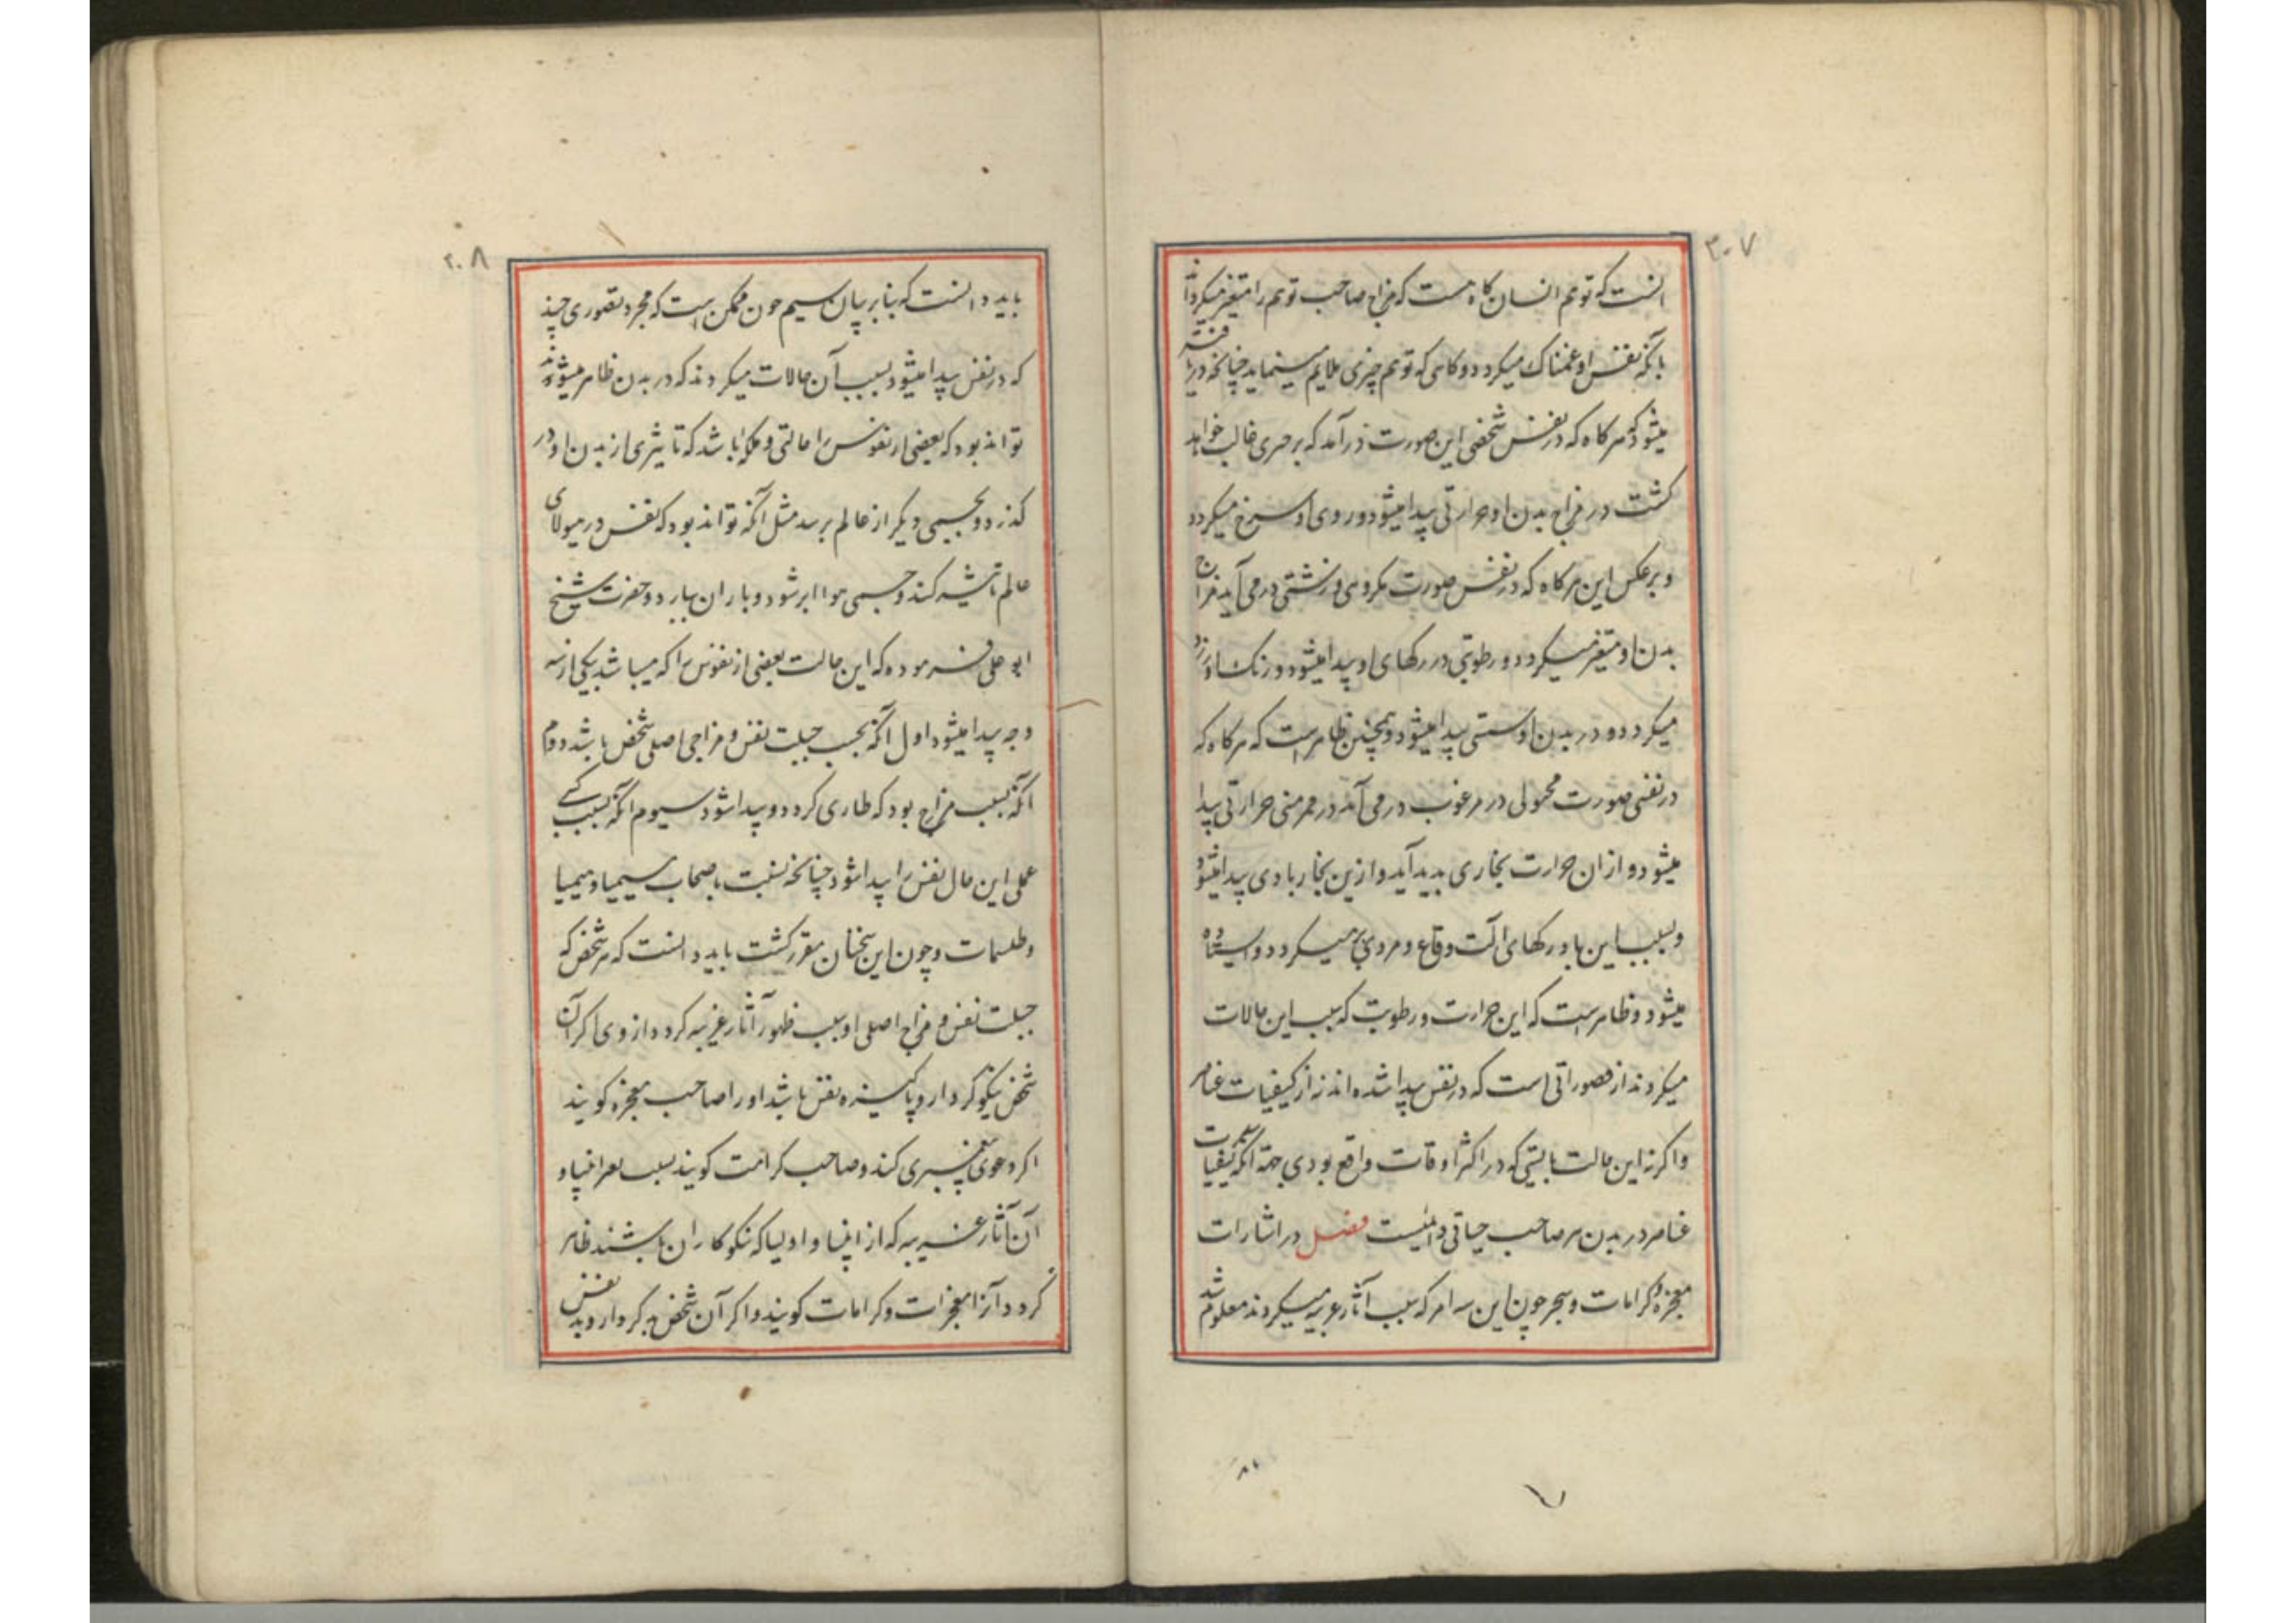 ۳۰۷
انست که توهم انسان کاه هست که مزاج صاحب توهم را متغیر میکرداند
بانکه نفس او غمناک میکردد و کاهی که توهم چیزی ملایم مینماید چنانچه دریافته
میشود که هرکاه که در نفس شخصی این صورت درآمد که بر حری غالب خواهد
کشت در مزاج بدن او حرارتی پیدا میشود و روی او سرخ میکردد
و برعکس این هرکاه که در نفس صورت مکروهی و زشتی در می آید مزاج
بدن او متغیر میکردد و رطوبتی در رکهای او پیدا میشود و رنک او زرد
میکردد و در بدن او سستی پیدا میشود و همچنین ظاهر است که هرکاه که
در نفسی صورت محمولی در مرغوب در می آمد در ممر منی حرارتی پیدا
میشود و از ان حرارت بخاری پدید آید و ازین بخار بادی پیدا میشود
و بسبب این باد رکهای الت وقاع و مردی پر میکردد و ایستاده
میشود و ظاهر است که این حرارت و رطوبت که سبب این حالات
میکردند از تصوراتی است که در نفس پیدا شده اند نه از کیفیات عناصر
و اکر نه این حالت بایستی که در اکثر اوقات واقع بودی جهة آنکه کیفیات
عناصر در بدن هر صاحب حیاتی دائمیست فصل در اشارات
معجزه و کرامات و سحر چون این سه امر که سبب آثار غریبه میکردند معلوم شد
۲۰۸
باید دانست که بنابر بیان سیم چون ممکن است که مجرد تصوری چند
که در نفس پیدا میشود بسبب آن حالات میکردند که در بدن ظاهر میشوند
تواند بود که بعضی از نفوس را حالتی و ملکه باشد که تاثیری از بدن او در
کذرد و بجسمی دیکر از عالم برسد مثل آنکه تواند بود که نفس در هیولای
عالم تاثیر کند و جسمی هوا ابر شود و باران ببارد و حضرت شیخ
ابو علی فرموده که این حالت بعضی از نفوس را که میباشد بیکی از سه
وجه پیدا میشود اول آنکه بحسب جبلت نفس و مزاجی اصلی شخص باشد دوم
آنکه بسبب مزاج بود که طاری کردد و پیدا شود سیوم آنکه بسبب کسب
عملی این حال نفس را پیدا شود چنانچه نسبت باصحاب سیمیا و هیمیا
و طلسمات و چون این سخنان مقرر کشت باید دانست که هر شخص که
جبلت نفس و مزاج اصلی او سبب ظهور آثار غریبه کردد از وی اکر آن
شخص نیکو کردار و پاکیزه نفس باشد او را صاحب معجزه کویند
اکر دعوی پیغمبری کند و صاحب کرامت کویند بسبب انبیا و
آن آثار غریبه که از انبیا و اولیا که نکوکاران باشند ظاهر
کردد آنرا معجزات و کرامات کویند و اکر آن شخص بد کردار و بد نفس